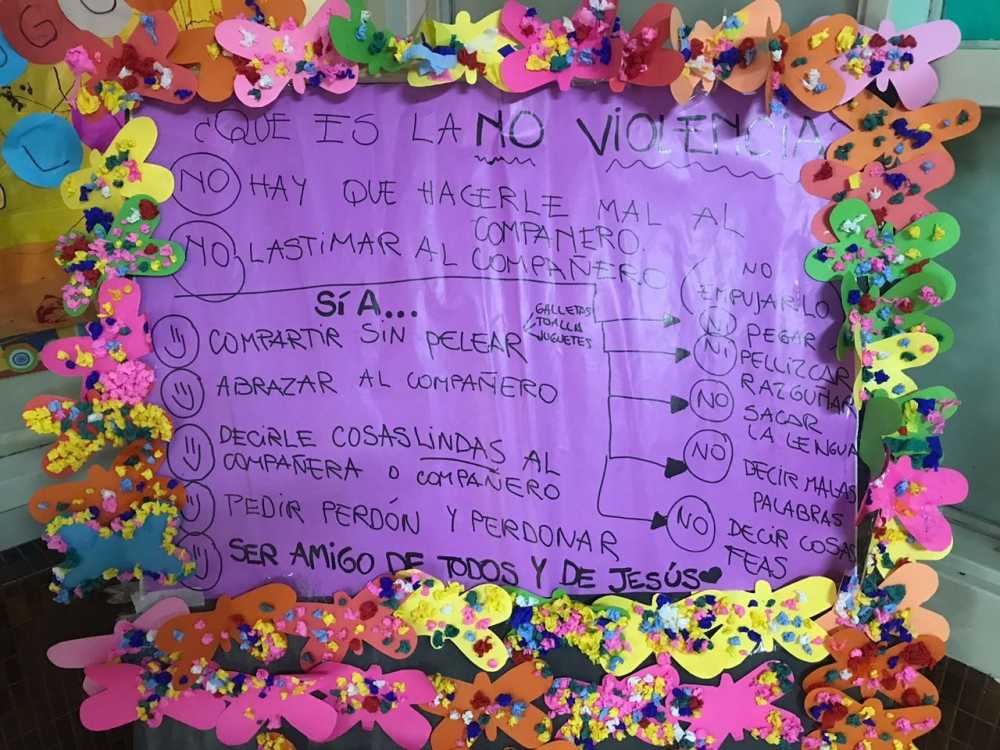 ¿QUE ES LA NO VIOLENCIA
NO HAY QUE HACERLE MAL AL
COMPAÑERO.
NO LASTIMAR AL COMPAÑERO
SÍ A...
COMPARTIR SIN PELEAR
GALLETAS
TOALLA
JUGUETES
ABRAZAR AL COMPAÑERO
DECIRLE COSAS LINDAS AL
COMPAÑERA O COMPAÑERO
PEDIR PERDÓN Y PERDONAR
SER AMIGO DE TODOS Y DE JESÚS
NO
EMPUJARLO
NI PEGAR
NI PELLIZCAR
RAZGUÑAR
NO SACAR
LA LENGUA
NO DECIR MALAS
PALABRAS
NO DECIR COSAS
FEAS